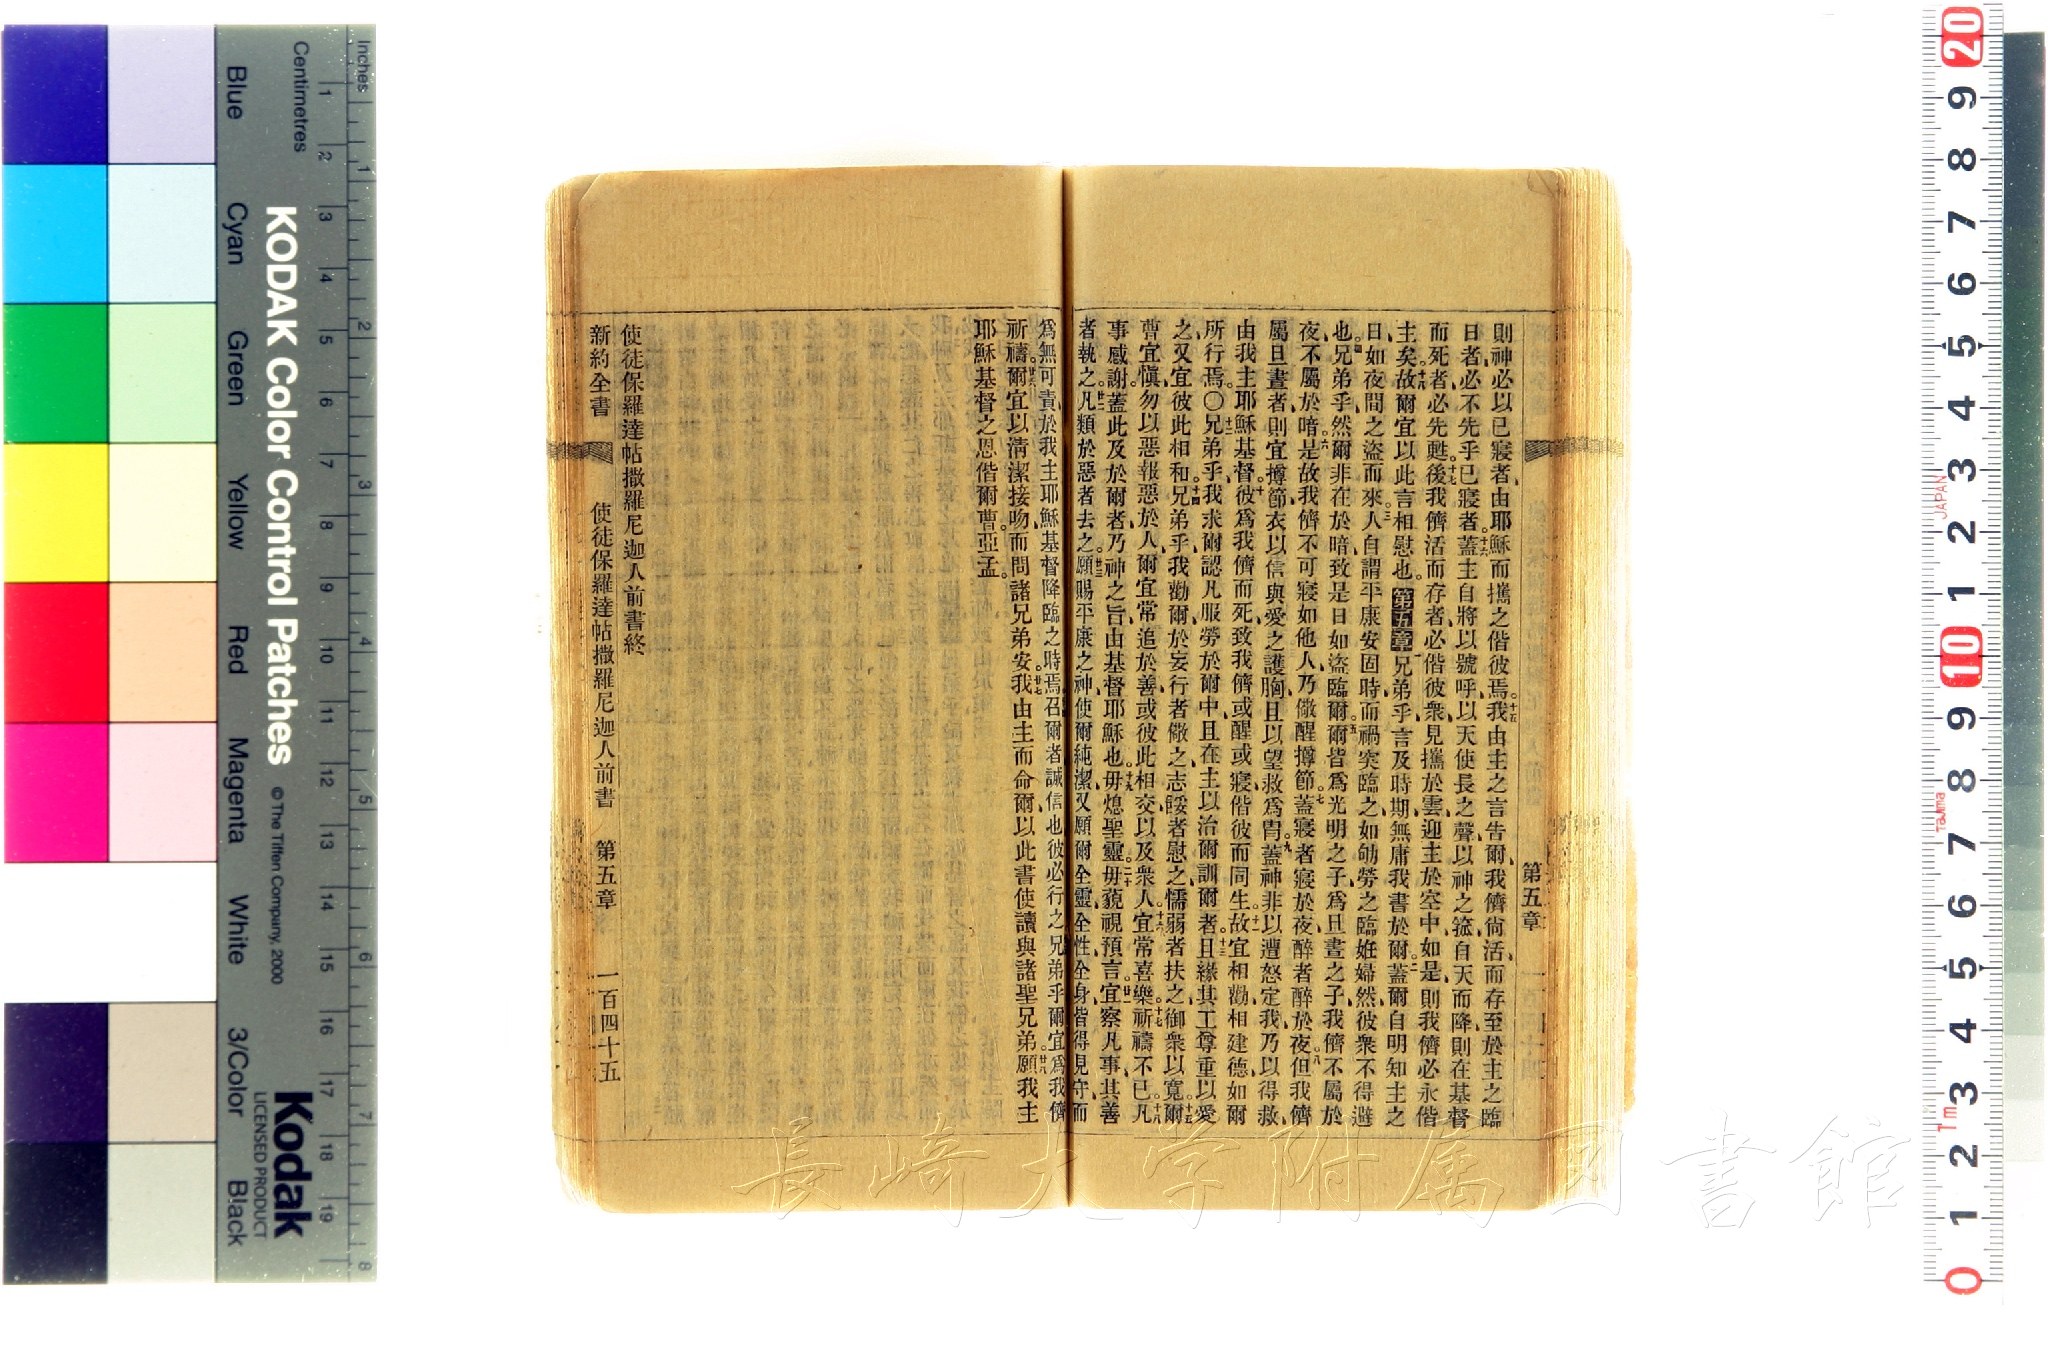 第五章
則神必以已寢者由耶穌而攜之偕彼焉十五我由主之言告爾我儕尙活而存至於主之臨
日者必不先乎已寢者十六蓋主自將以號呼以天使長之聲以神之箛自天而降則在基督
而死者必先甦十七後我儕活而存者必偕彼衆見攜於雲迎主於空中如是則我儕必永偕
主矣十八故爾宜以此言相慰也第五章一兄弟乎言及時期無庸我書於爾二蓋爾自明知主之
日如夜間之盜而來三人自謂平康安固時而禍突臨之如劬勞之臨姙婦然彼衆不得避
也四兄弟乎然爾非在於暗致是日如盜臨爾五爾皆爲光明之子爲旦晝之子我儕不屬於
夜不屬於暗六是故我儕不可寢如他人乃儆醒撙節七蓋寢者寢於夜醉者醉於夜八但我儕
屬旦晝者則宜撙節衣以信與愛之護胸且以望救爲冑九蓋神非以遭怒定我乃以得救
由我主耶穌基督十彼爲我儕而死致我儕或醒或寢偕彼而同生十一故宜相勸相建德如爾
所行焉〇十二兄弟乎我求爾認凡服勞於爾中且在主以治爾訓爾者十三且緣其工尊重以愛
之又宜彼此相和十四兄弟乎我勸爾於妄行者儆之志餒者慰之懦弱者扶之御衆以寬十五爾
曹宜愼勿以惡報惡於人爾宜常追於善或彼此相交以及衆人十六宜常喜樂十七祈禱不已十八凡
事感謝蓋此及於爾者乃神之旨由基督耶穌也十九毋熄聖靈二十毋藐視預言廿一宜察凡事其善
者執之廿二凡類於惡者去之廿三願賜平康之神使爾純潔又願爾全靈全性全身皆得見守而
爲無可責於我主耶穌基督降臨之時焉召爾者誠信也彼必行之兄弟乎爾宜爲我儕
祈禱廿六爾宜以清潔接吻而問諸兄弟安廿七我由主而命爾以此書使讀與諸聖兄弟廿八願我主
耶穌基督之恩偕爾曹亞孟
使徒保羅達帖撒羅尼迦人前書終
新約全書 使徒保羅達帖撒羅尼迦人前書 第五章 一百四十五
長崎大学附属図書館
Inches
Centimetres
Blue Cyan Green Yellow Red Magenta White 3/Color Black
KODAK Color Control Patches © The Tiffen Company, 2000
Kodak
LICENSED PRODUCT
1 2 3 4 5 6 7 8 9 10 11 12 13 14 15 16 17 18 19
1 2 3 4 5 6 7 8
20 9 8 7 6 5 4 3 2 1 10 9 8 7 6 5 4 3 2 1 0
JAPAN
Tajima
Tm